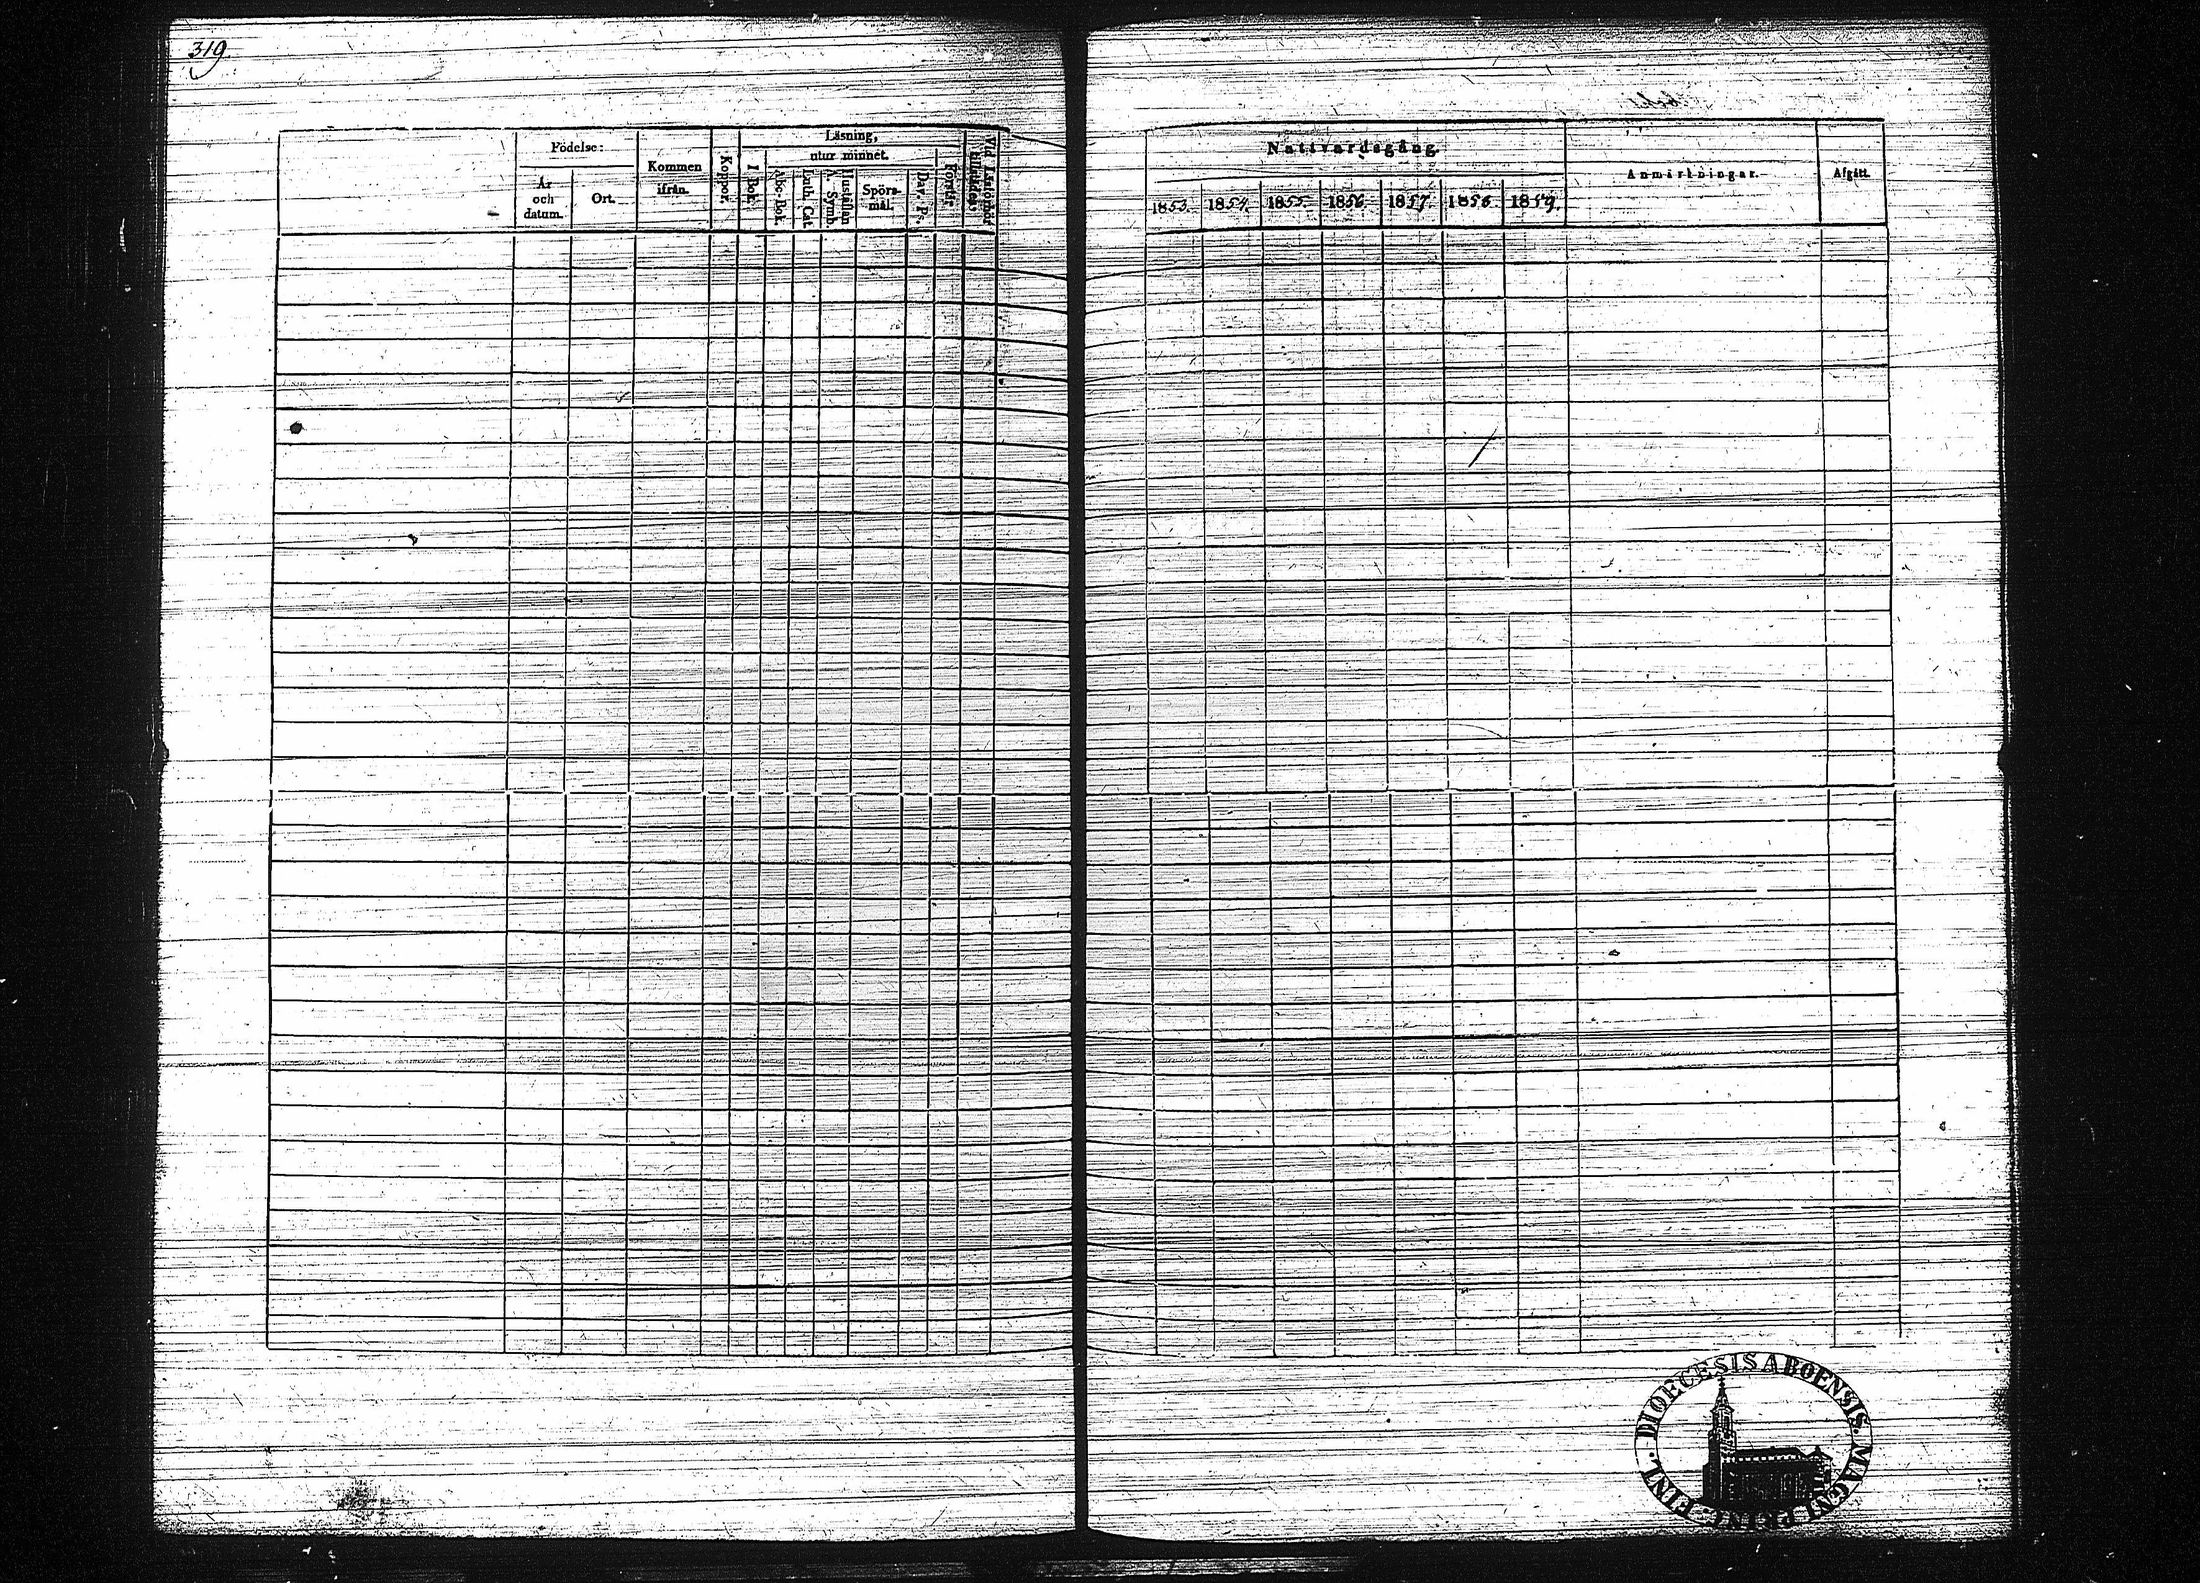 319
Födelse:
År
och
datum.
Ort.
Kommen
ifrån.
Koppor.
Läsning,
utur minnet.
I Bok.
Abc-Bok.
Luth. Cat.
Hustaflan
A. Symb.
Spörs-
mål.
Dav. Ps.
Förstår.
Nattvardsgång.
1853.
1854.
1855
1856
1857.
1858
1859.
Anmärkningar.
Afgått.
DIOECESIS ABOENSIS. MAGNI PRINC. FINL.